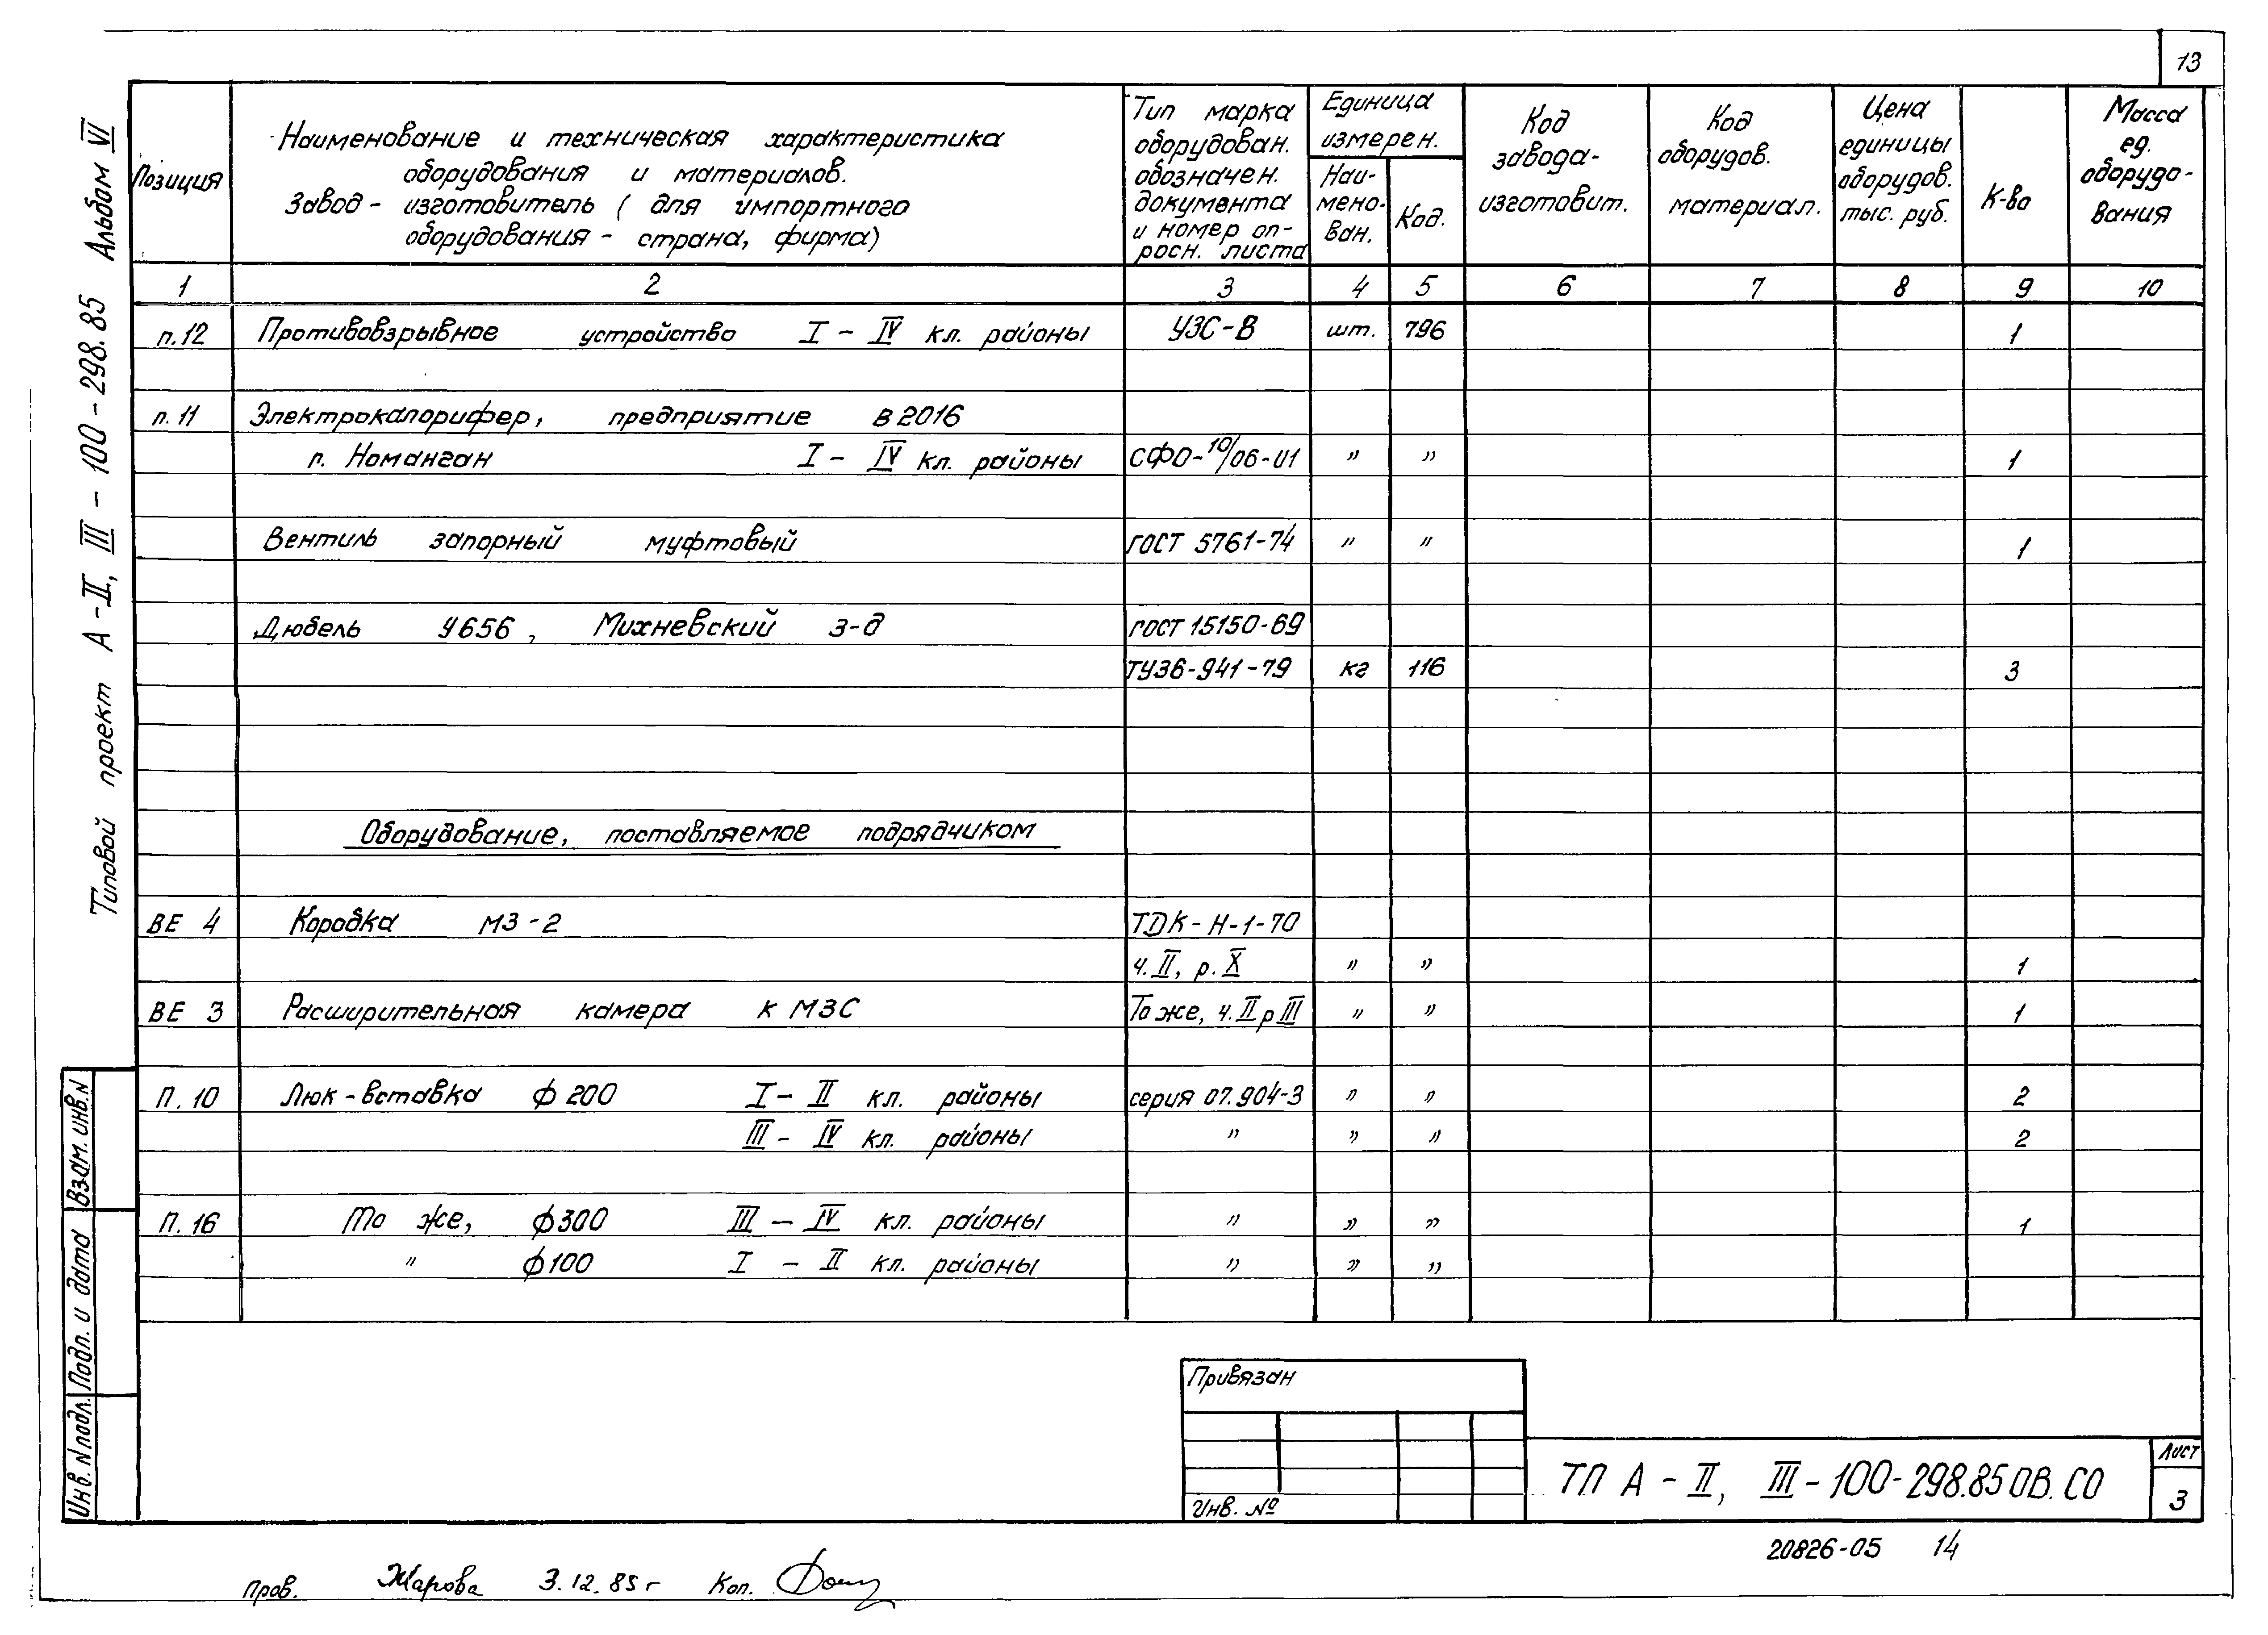 13
Типовой проект А-II, III-100-298.85 Альбом VI
Позиция
Наименование и техническая характеристика
оборудования и материалов.
Завод- изготовитель ( для импортного
оборудования - страна, фирма)
Тип марка
оборудован.
обозначен.
документа
и номер оп-
росн. листа
Единица
измерен.
Наи-
мено-
ван.
Код.
Код
завода-
изготовит.
Код
оборудов.
материал.
Цена
единицы
оборудов.
тыс. руб.
К-во
Масса
ед.
оборудо-
вания
1 2 3 4 5 6 7 8 9 10
п.12 Противовзрывное устройство I - IV кл. районы УЗС-В шт. 796 1
п.11 Электрокалорифер, предприятие в 2016
п. Наманган I - IV кл. районы СФО-10/06-И1 " " 1
Вентиль запорный муфтовый ГОСТ 5761-74 " " 1
Дюбель У656, Михневский з-д ГОСТ 15150-69
ТУ36-941-79 кг 116 3
Оборудование, поставляемое подрядчиком
ВЕ 4 Коробка МЗ-2 ТДК-Н-1-70
ч. II, р. X " " 1
ВЕ 3 Расширительная камера к МЗС То же, ч. II р III " " 1
П. 10 Люк-вставка ф 200 I - II кл. районы серия 07.904-3 " " 2
III - IV кл. районы " " " 2
П. 16 То же, ф300 III - IV кл. районы " " " 1
" ф100 I - II кл. районы " " "
Взам. инв. N
Подп. и дата
Инв. N подл.
Привязан
Инв. №
ТП А-II, III-100-298.85 ОВ.СО
Лист
3
20826-05 14
Пров. Жарова 3.12.85 г Коп.